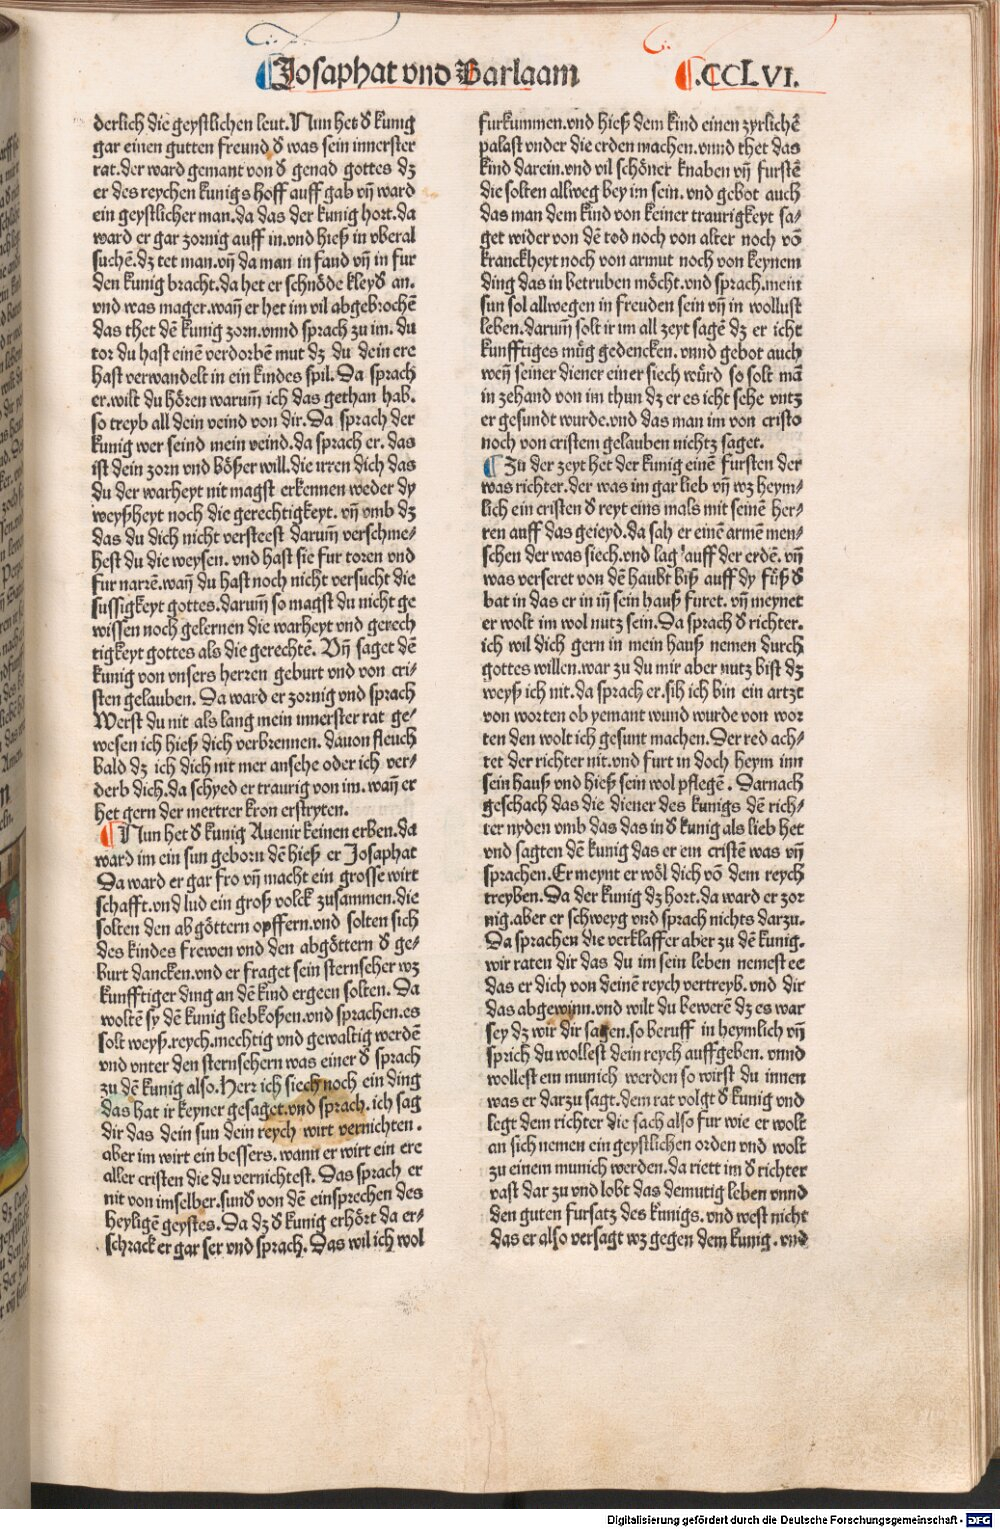 Josaphat vnd Barlaam
.CCLVI.
derlich die geystlichen leut. Nun het d̕ kunig
gar einen gutten freund d̕ was sein innerster
rat. der ward gemant von d̕ genad gottes dz
er des reychen kunigs hoff auff gab vn̄ ward
ein geystlicher man. da das der kunig hort. da
ward er gar zornig auff in. vnd hieß in vberal
suchē. dz tet man. vn̄ da man in fand vn̄ in fur
den kunig bracht. da het er schnöde kleyd an.
vnd was mager. wan̄ er het im vil abgebrochē
das thet dē kunig zorn. vnnd sprach zu im. du
tor du hast einē verdorbē mut dz du dein ere
hast verwandelt in ein kindes spil. Da sprach
er. wilt du hören warum̄ ich das gethan hab.
so treyb all dein veind von dir. Da sprach der
kunig wer seind mein veind. da sprach er. das
ist dein zorn vnd bößer will. die irren dich das
du der warheyt nit magst erkennen weder dy
weyßheyt noch die gerechtigkeyt. vn̄ vmb dz
das du dich nicht versteest darum̄ verschme-
hest du die weysen. vnd hast sie fur toren vnd
fur narrē. wan̄ du hast noch nicht versucht die
sussigkeyt gottes. darum̄ so magst du nicht ge
wissen noch gelernen die warheyt vnd gerech
tigkeyt gottes als die gerechtē. Vn̄ saget dē
kunig von vnsers herren geburt vnd von cri-
sten gelauben. Da ward er zornig vnd sprach
Werst du nit als lang mein innerster rat ge-
wesen ich hieß dich verbrennen. dauon fleuch
bald dz ich dich nit mer ansehe oder ich ver-
derb dich. da schyed er traurig von im. wan̄ er
het gern der mertrer kron erstryten.
Nun het d̕ kunig Auenir keinen erben. da
ward im ein sun geborn dē hieß er Josaphat
Da ward er gar fro vn̄ macht ein grosse wirt
schafft. vnd lud ein groß volck zusammen. die
solten den abgöttern opffern. vnd solten sich
des kindes frewen vnd den abgöttern d̕ ge-
burt dancken. vnd er fraget sein sternseher wz
kunfftiger ding an dē kind ergeen solten. Da
woltē sy dē kunig liebkoßen. vnd sprachen. es
solt weyß. reych. mechtig vnd gewaltig werdē
vnd vnter den sternsehern was einer d̕ sprach
zu dē kunig also. Herr ich siech noch ein ding
das hat ir keyner gesaget. vnd sprach. ich sag
dir das dein sun dein reych wirt vernichten.
aber im wirt ein bessers. wann er wirt ein ere
aller cristen die du vernichtest. Das sprach er
nit von imselber. sund̕ von dē einsprechen des
heyligē geystes. Da dz d̕ kunig erhört da er-
schrack er gar ser vnd sprach. Das wil ich wol
furkummen. vnd hieß dem kind einen zyrlichē
palast vnder die erden machen. vnnd thet das
kind darein. vnd vil schöner knaben vn̄ furstē
die solten allweg bey im sein. vnd gebot auch
das man dem kind von keiner traurigkeyt sa-
get wider von dē tod noch von alter noch vō
kranckheyt noch von armut noch von keynem
ding das in betruben möcht. vnd sprach. mein
sun sol allwegen in freuden sein vn̄ in wollust
leben. darum̄ solt ir im all zeyt sagē dz er icht
kunfftiges müg gedencken. vnnd gebot auch
wen̄ seiner diener einer siech würd so solt mā
in zehand von im thun dz er es icht sehe vntz
er gesundt wurde. vnd das man im von cristo
noch von cristem gelauben nichtz saget.
Zu der zeyt het der kunig einē fursten der
was richter. der was im gar lieb vn̄ wz heym-
lich ein cristen d̕ reyt eins mals mit seinē her-
ren auff das geieyd. da sah er einē armē men-
schen der was siech. vnd lag auff der erdē. vn̄
was verseret von dē haubt biß auff dy füß d̕
bat in das er in in̄ sein hauß furet. vn̄ meynet
er wolt im wol nutz sein. Da sprach d̕ richter.
ich wil dich gern in mein hauß nemen durch
gottes willen. war zu du mir aber nutz bist dz
weyß ich nit. da sprach er. sih ich bin ein artzt
von worten ob yemant wund wurde von wor
ten den wolt ich gesunt machen. Der red ach-
tet der richter nit. vnd furt in doch heym inn
sein hauß vnd hieß sein wol pflegē. Darnach
geschach das die diener des kunigs dē rich-
ter nyden vmb das das in d̕ kunig als lieb het
vnd sagten dē kunig das er ein cristē was vn̄
sprachen. Er meynt er wöl dich vō dem reych
treyben. Da der kunig dz hort. da ward er zor
nig. aber er schweyg vnd sprach nichts darzu.
Da sprachen die verklaffer aber zu dē kunig.
wir raten dir das du im sein leben nemest ee
das er dich von deinē reych vertreyb. vnd dir
das abgewinn. vnd wilt du bewerē dz es war
sey dz wir dir sagen. so beruff in heymlich vn̄
sprich du wollest dein reych auffgeben. vnnd
wollest ein munich werden so wirst du innen
was er darzu sagt. dem rat volgt d̕ kunig vnd
legt dem richter die sach also fur wie er wolt
an sich nemen ein geystlichen orden vnd wolt
zu einem munich werden. da riett im d̕ richter
vast dar zu vnd lobt das demutig leben vnnd
den guten fursatz des kunigs. vnd west nicht
das er also versagt wz gegen dem kunig. vnd
Digitalisierung gefördert durch die Deutsche Forschungsgemeinschaft - DFG